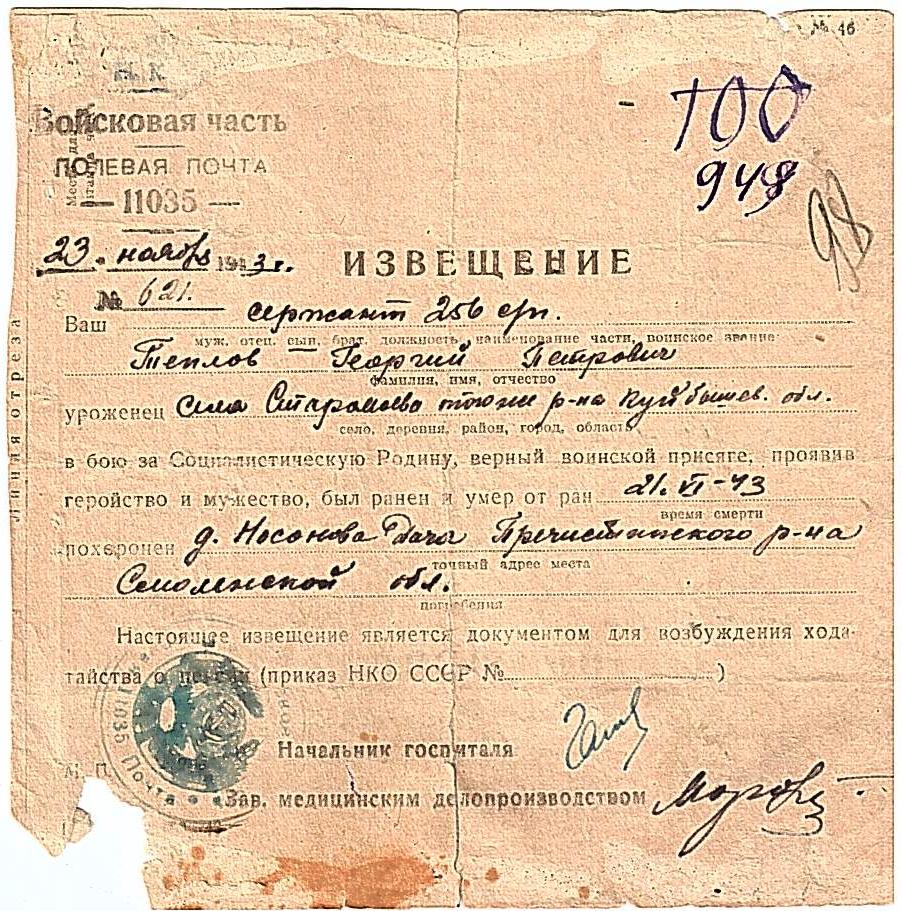 № 46
Н. К.
Войсковая часть
ПОЛЕВАЯ ПОЧТА
— 11035 —
100
949
98
23. ноября 1943 г.
ИЗВЕЩЕНИЕ
№ 621.
Ваш сержант 256 сп.
муж, отец, сын, брат, должность, наименование части, воинское звание
Теплов — Георгий Петрович
фамилия, имя, отчество
уроженец села р-на Куйбышев. обл.
село, деревня, район, город, область
в бою за Социалистическую Родину, верный воинской присяге, проявив
геройство и мужество, был ранен и умер от ран 21. VI-43
время смерти
похоронен д. Носонова Дача Пречистинского р-на
точный адрес места
Смоленской обл.
погребения
Настоящее извещение является документом для возбуждения хода-
тайства о пенсии (приказ НКО СССР № )
Начальник госпиталя
М. П.
Зав. медицинским делопроизводством
Линия отреза
11035 Почта